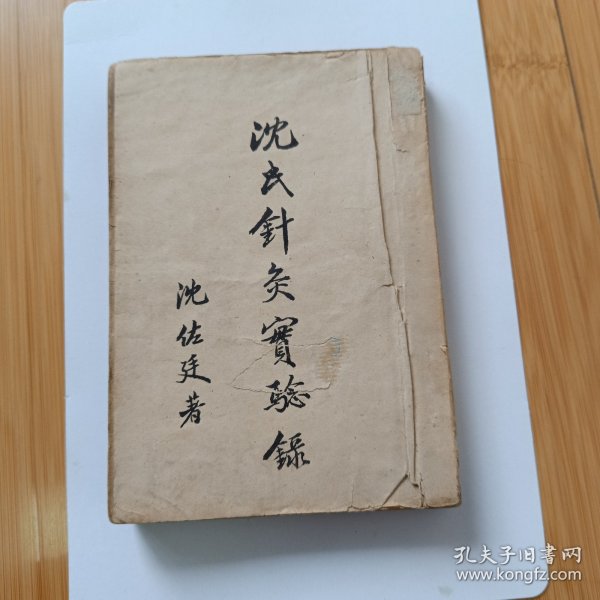 沈氏針灸實驗錄
沈佐廷著
孔夫子旧书网
www.kongfz.com